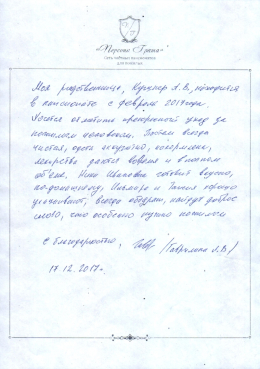 «Персона Грата»
Моя родственница, Кушнир А.В., находится
в пансионате с февраля 2017 года.
Хочется отметить прекрасный уход за
пожилым человеком. Бабушка всегда
чистая, одета аккуратно, накормлена,
лекарства даются вовремя и в полном
объёме. Нина Ивановна готовит вкусно,
по-домашнему, и хорошо
ухаживают, всегда ободрят, найдут доброе
слово, что особенно нужно пожилым
С благодарностью, /Гаврилина А.В./
17.12.2017г.